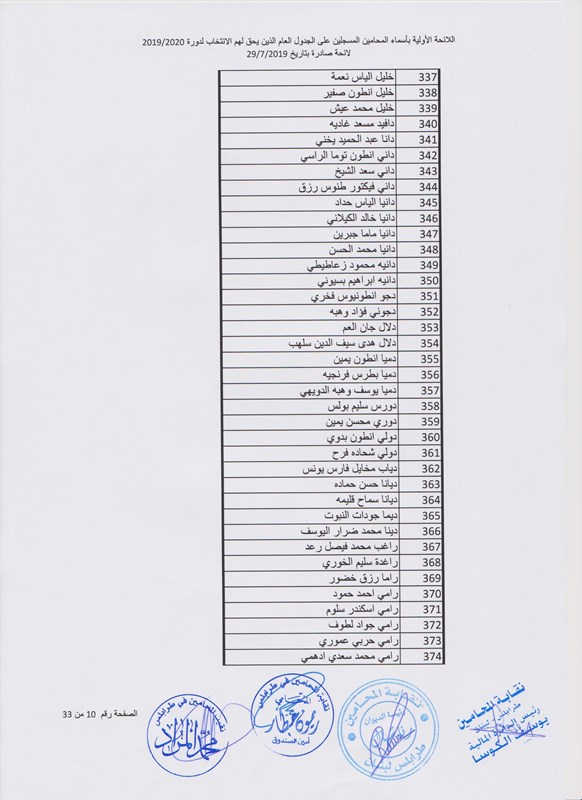 اللائحة الأولية بأسماء المحامين المسجلين على الجدول العام الذين يحق لهم الانتخاب لدورة 2019/2020
لائحة صادرة بتاريخ 29/7/2019
337 خليل الياس نعمة
338 خليل انطون صفير
339 خليل محمد عيش
340 دافيد مسعد غاديه
341 دانا عبد الحميد يخني
342 داني انطون توما الراسي
343 داني سعد الشيخ
344 داني فيكتور طنوس رزق
345 دانيا الياس حداد
346 دانيا خالد الكيلاني
347 دانيا ماما جبرين
348 دانيا محمد الحسن
349 دانيه محمود زعاطيطي
350 دانيه ابراهيم بسيوني
351 دجو انطونيوس فخري
352 دجوني فؤاد وهبه
353 دلال جان العم
354 دلال هدى سيف الدين سلهب
355 دميا انطون يمين
356 دميا بطرس فرنجيه
357 دميا يوسف وهبه الدويهي
358 دورس سليم بولس
359 دوري محسن يمين
360 دولي انطون بدوي
361 دولي شحاده فرح
362 دياب مخايل فارس يونس
363 ديانا حسن حماده
364 ديانا سماح قليمه
365 ديما جودات النبوت
366 دينا محمد ضرار اليوسف
367 راغب محمد فيصل رعد
368 راغدة سليم الخوري
369 راما رزق خضور
370 رامي احمد حمود
371 رامي اسكندر سلوم
372 رامي جواد لطوف
373 رامي حربي عموري
374 رامي محمد سعدي ادهمي
نقابة المحامين
طرابلس - لبنان
يوسف الكوسا
نقابة المحامين
رئيسة الديوان
طرابلس لبنان
نقابة المحامين في طرابلس
ريمون خطار
أمين الصندوق
نقيب المحامين في طرابلس
محمد المراد
الصفحة رقم 10 من 33